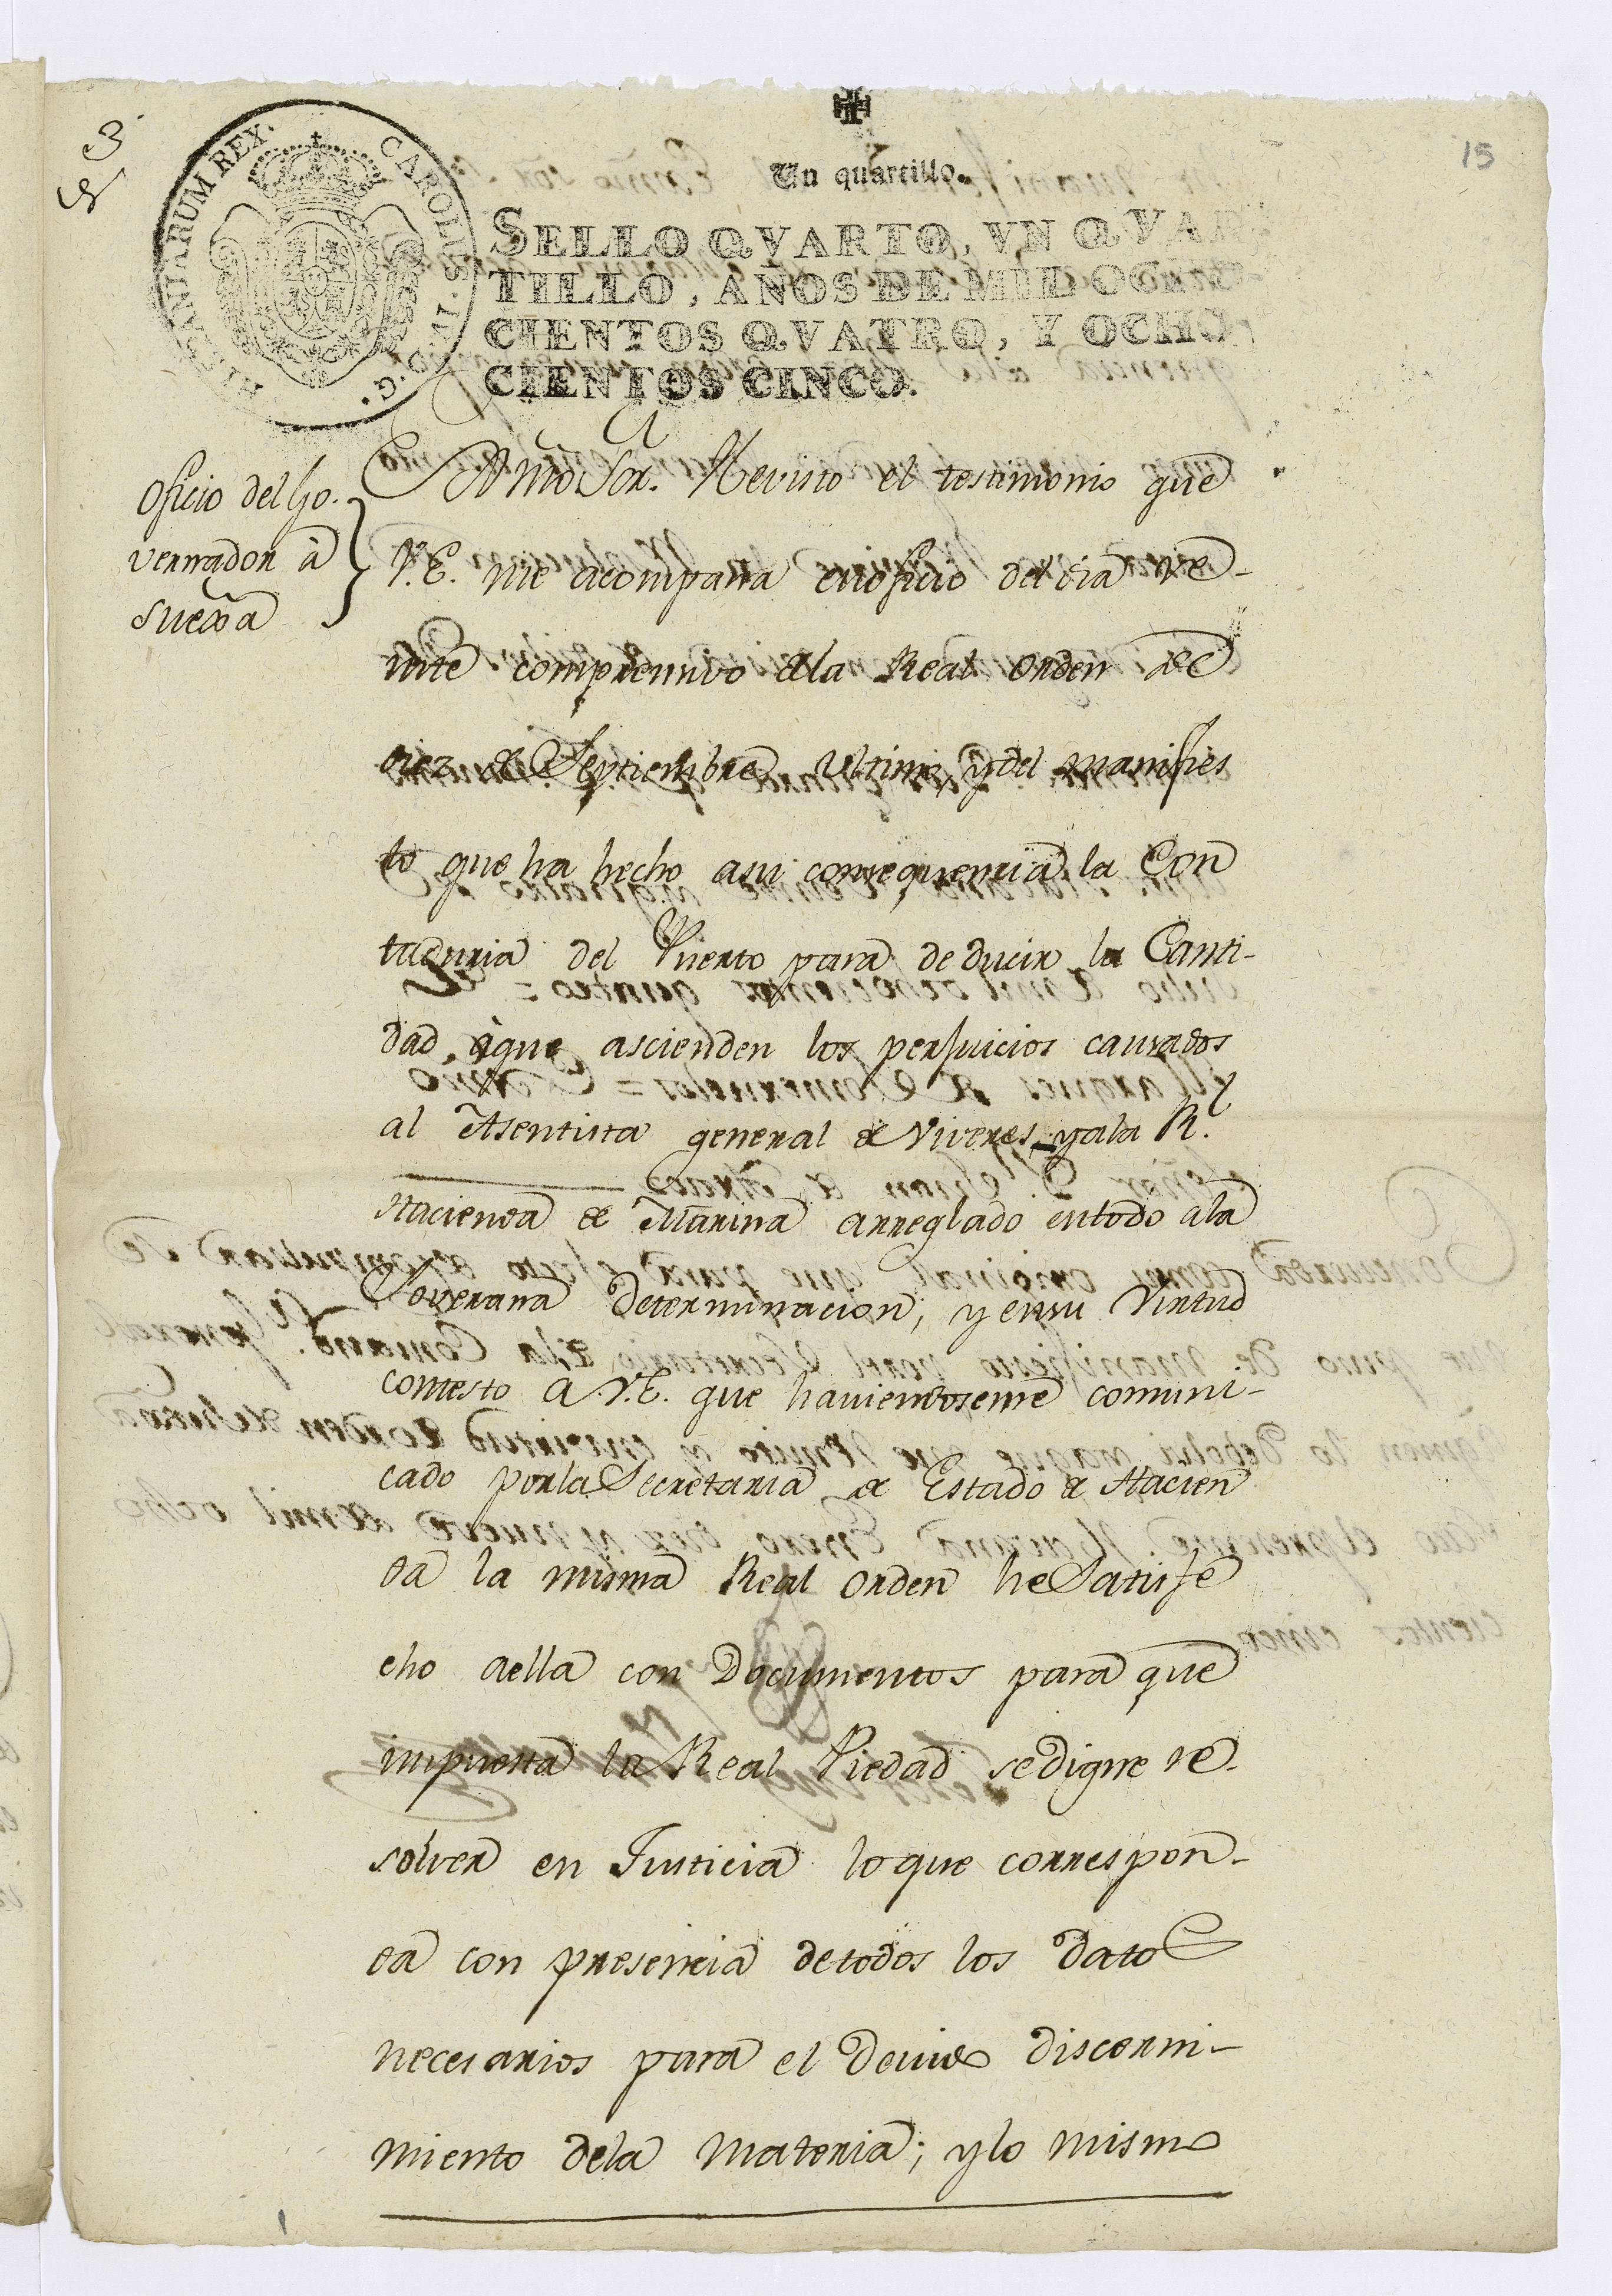 15
Un quartillo.
HISPANIARUM REX. CAROLUS. IV. D. G.
SELLO QVARTO, VN QVAR
TILLO, AÑOS DE MIL OCHO
CIENTOS QVATRO, Y OCHO
CIENTOS CINCO.
Oficio del Go-
vernador à
su exã
Exmõ Sor. He visto el testimonio que
V.E. me acompaña en oficio del dia ve-
inte comprensivo de la Real orden de
diez de Septiembre ultimo, y del manifies
to que ha hecho a su consequencia la Con
taduria del Puerto para deducir la Canti-
dad, à que ascienden los perjuicios causados
al Asentista general de viveres, y a la Rl.
Hacienda de Marina arreglado en todo a la
Soverana determinacion; y en su virtud
contesto a V.E. que haviendoseme comuni-
cado por la Secretaria de Estado de Hacien
da la misma Real orden he Satisfe
cho a ella con Documentos para que
impuesta la Real Piedad se digne re-
solver en Justicia lo que correspon-
da con presencia de todos los datos
necesarios para el devido discerni-
miento de la materia; y lo mismo